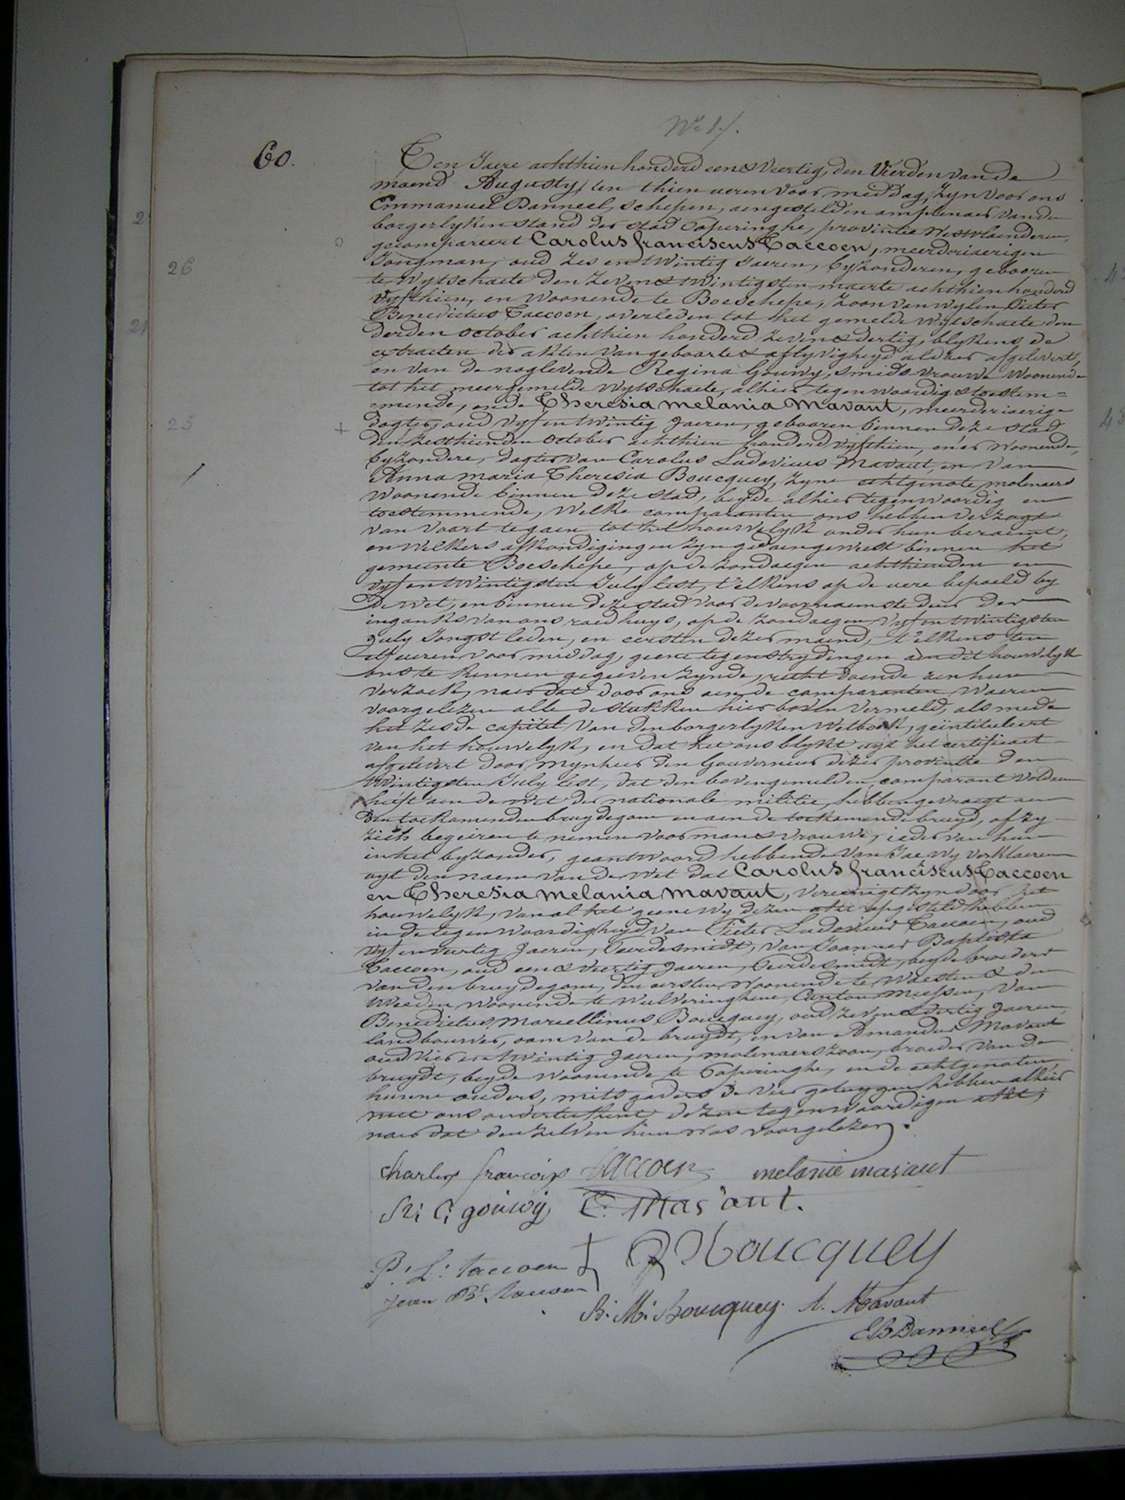 60.
26
25
Ten Jaere achthien honderd een & veertig, den Vierden van de
maend Augusty, ten thien ueren voor middag, zyn voor ons
Emmanuel Banneel, schepen, aengesteld in ampt van
borgerlyken stand der stad Poperinghe, provintie Westvlaenderen,
gecompareert Carolus franciscus Taccoen, meerderjaerigen
Jongman, oud zes en twintig Jaeren, byzonderen, gebooren
te Wytschaete den zeven & twintigsten maerte achthien honderd
vyfthien, en woonende te Boeschepe, zoon van wylen Pieter
Benedictus Taccoen, overleden tot het gemelde Wytschaete den
derden october achthien honderd zeven & dertig, blykens de
extracten der akten van geboorte & aflyvigheyd alhier afgelevert,
en van de naglevende Regina Gouwy, smids vrouwe woonende
tot het meergemelde Wytschaete, alhier tegenwoordig & toestem=
mende, ende Theresia melania Mavaut, meerderjaerige
dogter, oud vyf en twintig Jaeren, gebooren binnen deze stad
den zesthienden October achthien honderd vyfthien, en er woonende,
byzondere, dogter van Carolus Ludovicus Mavaut, en van
Anna Maria Theresia Boucquey, zyne echtgenote, molenaers
woonende binnen deze stad, beyde alhier tegenwoordig en
toestemmende, Welke comparanten ons hebben verzogt
van voort te gaen tot het houwelyk onder hun beraemt,
en welkers afkondigingen zyn gedaen geweest binnen het
gemeente Boeschepe, op de zondaegen achthienden en
vyf en twintigsten July lest, telkens op de uere bepaeld by
de Wet, en binnen deze stad voor de voornaemste deur der
ingank van ons raedhuys, op de zondaegen vyf en twintigsten
July Jongstleden, en eersten dezer maend, telkens ten
elf ueren voor middag, geene tegenstrydingen aen dit houwelyk
ons te kennen gegeven zynde, recht doende aen hun
verzoek, naer dat door ons aen de comparanten waeren
voorgelezen alle de stukken hier boven vermeld, als mede
het zesde capittel van den borgerlyken Wetboek, geintituleert
van het houwelyk, en dat het ons blykt uyt het certificaet
afgelevert door Mynheer den Gouverneur dezer provintie den
twintigsten July lest, dat den bovengemelden comparant voldaen
heeft aen de wet der nationale militie, hebben gevraegt aen
den toekomenden bruydegom en aen de toekomende bruyd, of zy
zich begeiren te nemen voor man & vrouwe, ieder van hun
in het byzonder, geantwoord hebbende van Jae, wy verklaeren
uyt den naem van de Wet dat Carolus franciscus Taccoen
en Theresia melania mavaut, vereenigt zyn door het
houwelyk, van al het geene wy dezen akt opgesteld hebben
in de tegenwoordigheyd van Pieter Ludovicus Taccoen, oud
vyf en veertig Jaeren, Peirdesmidt, van Joannes Baptista
Taccoen, oud een & veertig Jaeren, Peirdesmidt, beyde broeders
van den bruydegom, den eersten woonende te Waesten & den
tweeden woonende te Wulveringhem, Canton Meessen, van
Benedictus Marcellinus Boucquey, oud zeven & dertig Jaeren,
landbouwer, oom van de bruydt, en van Amandus Mavaut
oud vier en twintig Jaeren, molenaers zoon, broeder van de
bruydt, beyde woonende te Poperinghe, en de echtgenoten,
hunne ouders, mitsgaders de vier getuygen hebben alhier
met ons onderteekent dezen tegenwoordigen akt,
naer dat den zelven hun was voorgelezen.
Charles francois Taccoen melanie mavaut
R: C: gouwÿ C. Mavaut.
Boucquey
P: L: taccoen
Jean Bte Taccoen
B: M: Boucquey. A. Mavaut
E Banneel